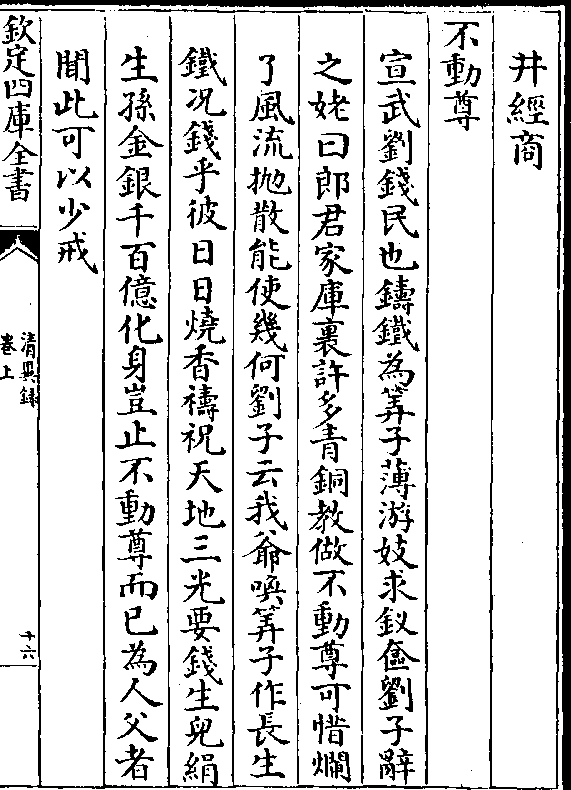 井經商
不動尊
宣武劉錢民也鑄鐵為筭子薄游妓求釵奩劉子辭
之姥曰郎君家庫裏許多青銅教做不動尊可惜爛
了風流抛散能使幾何劉子云我爺喚筭子作長生
鐵况錢乎彼日日燒香禱祝天地三光要錢生兒絹
生孫金銀千百億化身豈止不動尊而已為人父者
聞此可以少戒
欽定四庫全書
清異錄
卷上
十六